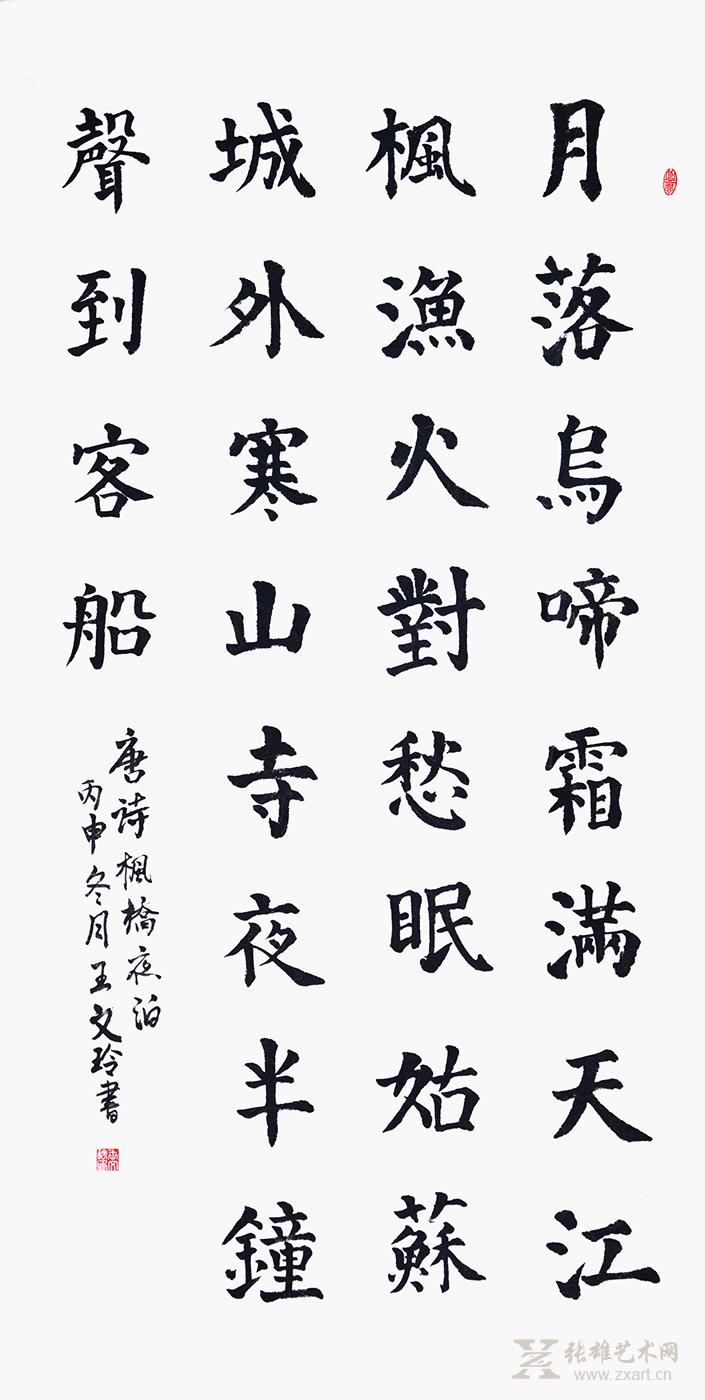 月落烏啼霜滿天江
楓漁火對愁眠姑蘇
城外寒山寺夜半鐘
聲到客船
唐诗楓橋夜泊
丙申冬月王文玲書
张雄艺术网
www.zxart.cn